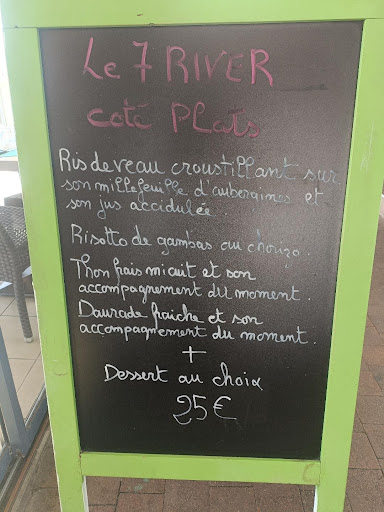 Le 7 RIVER
coté Plats
Ris de veau croustillant sur
son millefeuille d'aubergines et
son jus accidulée.
Risotto de gambas au chorizo.
Thon frais micuit et son
accompagnement du moment.
Daurade fraiche et son
accompagnement du moment.
+
Dessert au choix
25€